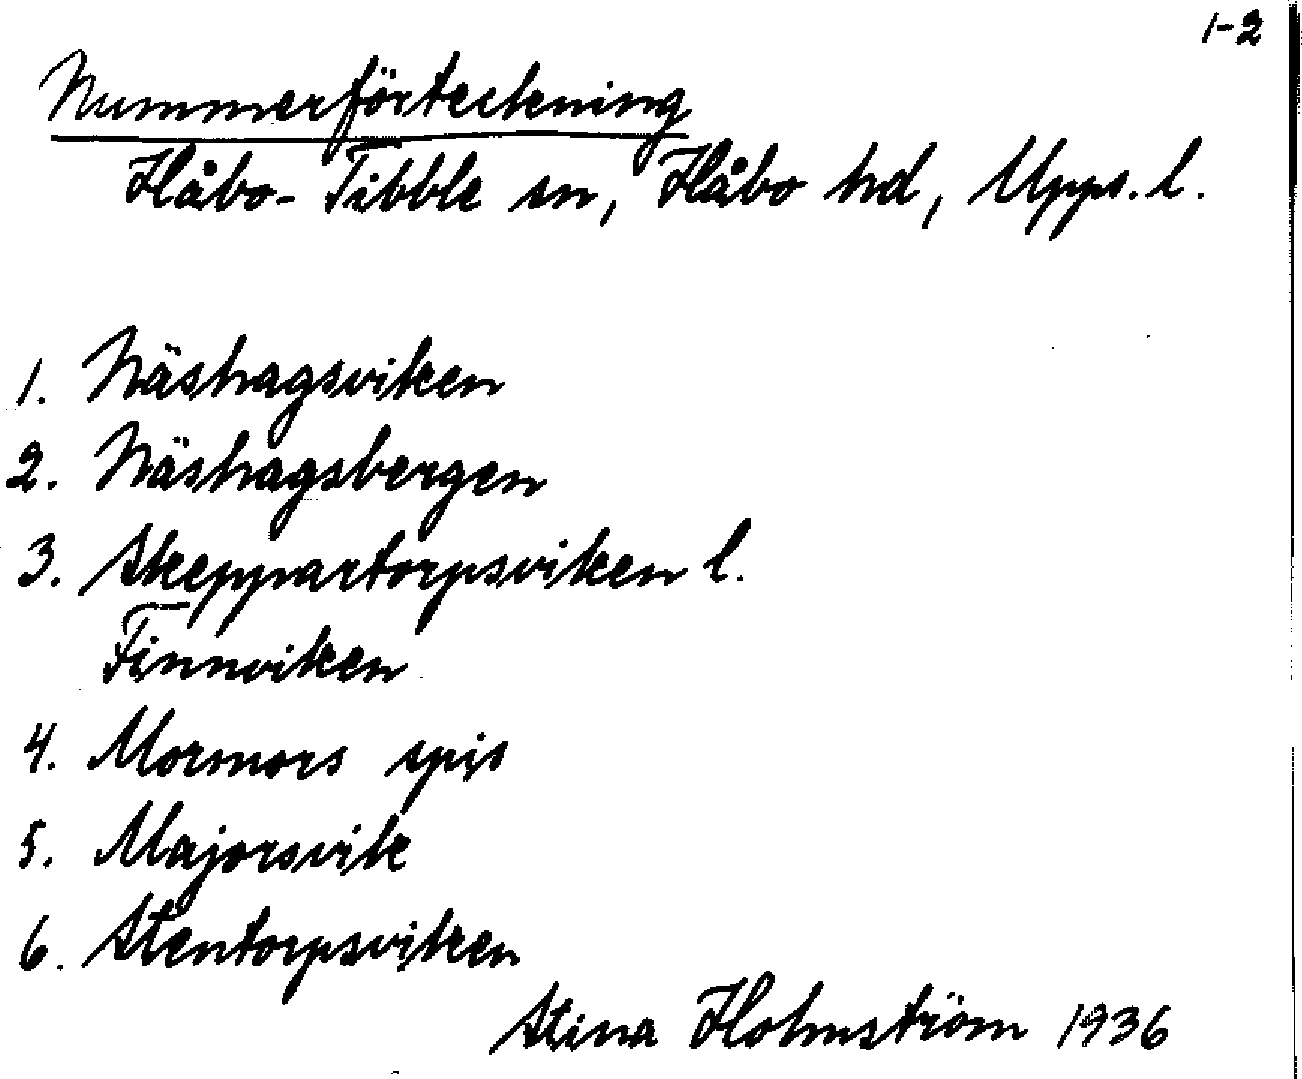 1-2
Nummerförteckning
Håbo-Tibble sn, Håbo hd, Upps. l.
1. Näshagsviken
2. Näshagsbergen
3. Skeppartorpsviken l.
Finnviken
4. Mormors spis
5. Majorsvik
6. Stentorpsviken
Stina Holmström 1936